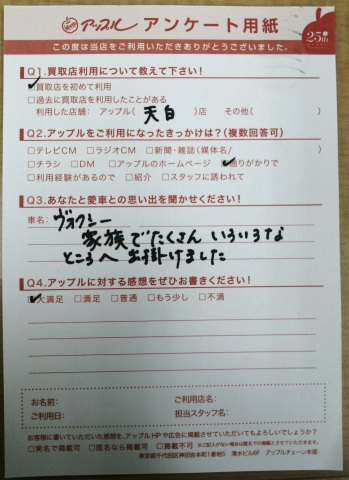 アップル アンケート用紙
25th
この度は当店をご利用いただきありがとうございました。
Q1.買取店利用について教えて下さい!
□買取店を初めて利用
□過去に買取店を利用したことがある
利用した店舗: アップル( 天白 )店 その他( )
Q2.アップルをご利用になったきっかけは?(複数回答可)
□テレビCM □ラジオCM □新聞・雑誌(媒体名/ )
□チラシ □DM □アップルのホームページ □通りがかりで
□利用経験があるので □紹介 □スタッフに誘われて
Q3.あなたと愛車との思い出を聞かせください!
車名: ヴォクシー
家族でたくさん いろいろな
ところへ お出掛けました
Q4.アップルに対する感想をぜひお書きください!
□大満足 □満足 □普通 □もう少し □不満
お名前: ご利用店名:
ご利用日: 担当スタッフ名:
お客様に書いていただいた感想を、アップルHPや広告に掲載させていただいてもよろしいでしょうか?
□実名で掲載可 □匿名なら掲載可 □掲載不可 ※ご記入がない場合は匿名での掲載とさせていただきます。
東京都千代田区神田岩本町1番地5 清水ビル6F アップルチェーン本部